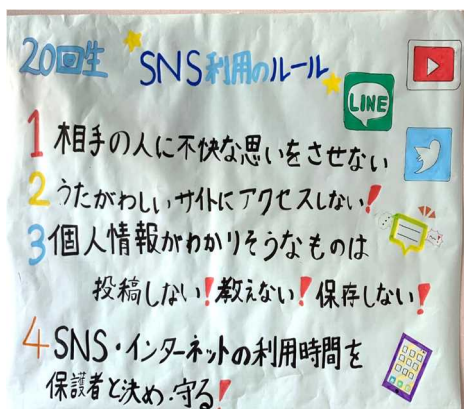 20回生 SNS利用のルール
LINE
1 相手の人に不快な思いをさせない
2 うたがわしいサイトにアクセスしない!
3 個人情報がわかりそうなものは
投稿しない!教えない!保存しない!
4 SNS・インターネットの利用時間を
保護者と決め・守る!